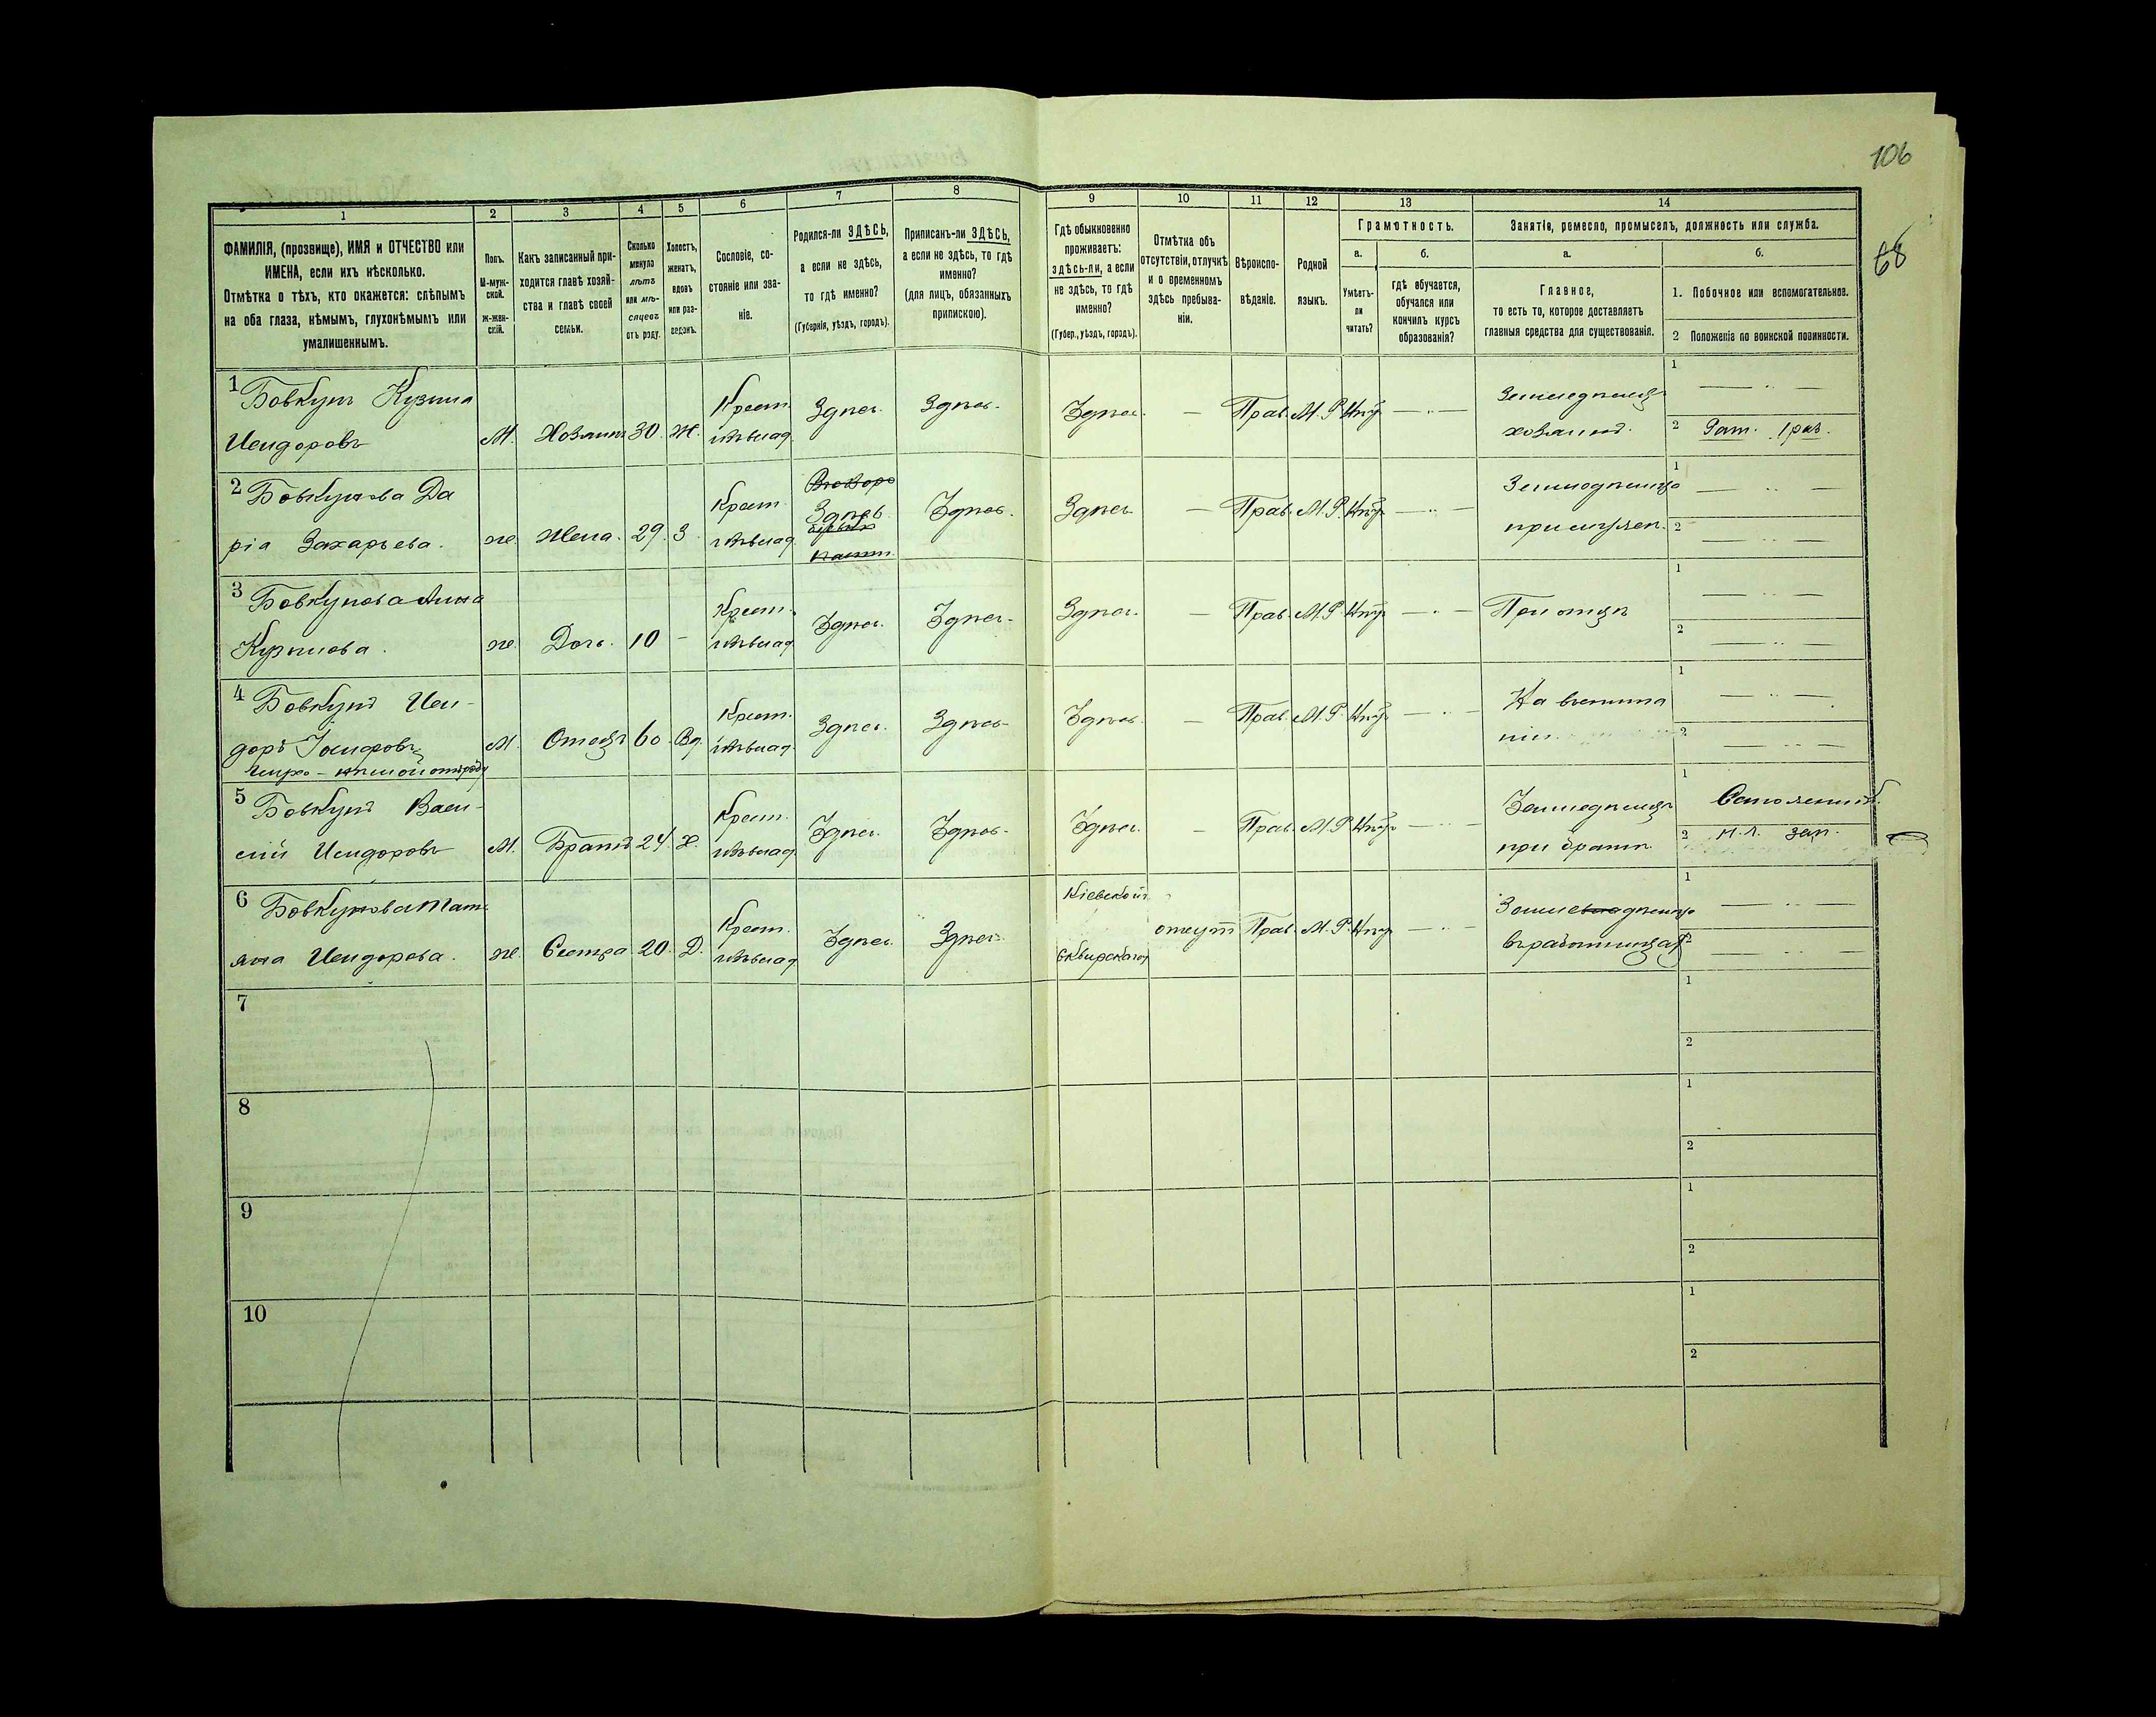 106
68
1 2 3 4 5 6 7 8 9 10 11 12 13 14
ФАМИЛІЯ, (прозвище), ИМЯ и ОТЧЕСТВО или
ИМЕНА, если ихъ нѣсколько.
Отмѣтка о тѣхъ, кто окажется: слѣпымъ
на оба глаза, нѣмымъ, глухонѣмымъ или
умалишеннымъ.
Полъ.
М-муж-
ской.
Ж-жен-
скій.
Какъ записанный при-
ходится главѣ хозяй-
ства и главѣ своей
семьи.
Сколько
минуло
лѣтъ
или мѣ-
сяцевъ
отъ роду.
Холостъ,
женатъ,
вдовъ
или раз-
веденъ.
Сословіе, со-
стояніе или зва-
ніе.
Родился-ли ЗДѢСЬ,
а если не здѣсь,
то гдѣ именно?
(Губернія, уѣздъ, городъ).
Приписанъ-ли ЗДѢСЬ,
а если не здѣсь, то гдѣ
именно?
(для лицъ, обязанныхъ
припискою).
Гдѣ обыкновенно
проживаетъ:
здѣсь-ли, а если
не здѣсь, то гдѣ
именно?
(Губер., уѣздъ, городъ).
Отмѣтка объ
отсутствіи, отлучкѣ
и о временномъ
здѣсь пребыва-
ніи.
Вѣроиспо-
вѣданіе.
Родной
языкъ.
Грамотность.
а.
Умѣетъ-
ли
читать?
б.
гдѣ обучается,
обучался или
кончилъ курсъ
образованія?
Занятіе, ремесло, промыселъ, должность или служба.
а.
Главное,
то есть то, которое доставляетъ
главныя средства для существованія.
б.
1. Побочное или вспомогательное.
2 Положеніе по воинской повинности.
1 Бовкунъ Кузьма
Исидоровъ М. Хозяинъ 30. Ж. Крест. Здѣсь. Здѣсь. Здѣсь. — Прав. М. Р. Нѣтъ
хозяинъ.
1
2 Рат. 1 раз.
2 Бовкунова Да
рія Захарьева. же. Жена. 29. З. Крест. Здѣсь Здѣсь. Здѣсь — Прав. М. Р. Нѣтъ
при мужѣ.
1
2
3 Бовкунова Анна
Кузьмова. же. Дочь. 10 - Крест. Здѣсь. Здѣсь. Здѣсь. — Прав. М. Р. Нѣтъ При отцѣ
1
2
4 Бовкунъ Иси-
доръ М. Отецъ 60. Вд. Крест. Здѣсь. Здѣсь Здѣсь. — Прав. М. Р. Нѣтъ
1
2
5 Бовкунъ Васи-
лій Исидоровъ М. Братъ 24. Х. Крест. Здѣсь. Здѣсь. Здѣсь. — Прав. М. Р. Нѣтъ
Земледѣлецъ
при братѣ
1
2 зап.
6 Бовкунова Тать-
яна Исидорова. же. Сестра 20. Д. Крест. Здѣсь. Здѣсь. Кіевской
Сквирскаго отсут Прав. М. Р. Нѣтъ
въ работницахъ
1
2
7
1
2
8
1
2
9
1
2
10
1
2